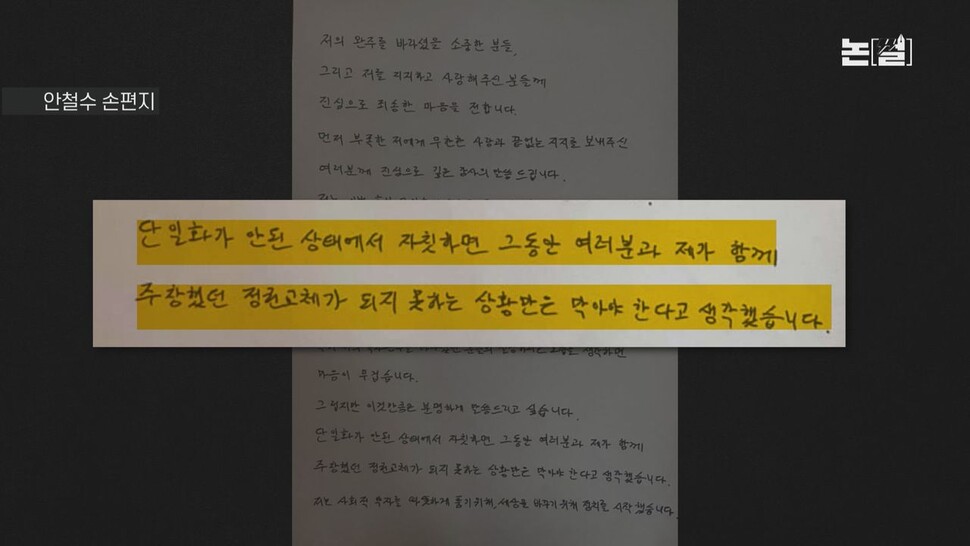 논[썰]
안철수 손편지
저의 완주를 바라셨을 소중한 분들,
그리고 저를 지지하고 사랑해주신 분들께
진심으로 죄송한 마음을 전합니다.
먼저 부족한 저에게 무한한 사랑과 끝없는 지지를 보내주신
여러분께 진심으로 깊은 감사의 말씀 드립니다.
단일화가 안된 상태에서 자칫하면 그동안 여러분과 제가 함께
주장했던 정권교체가 되지 못하는 상황만은 막아야 한다고 생각했습니다.
마음이 무겁습니다.
그렇지만 이것만큼은 분명하게 말씀드리고 싶습니다.
단일화가 안된 상태에서 자칫하면 그동안 여러분과 제가 함께
주장했던 정권교체가 되지 못하는 상황만은 막아야 한다고 생각했습니다.
저는 사회적 부자는 따뜻하게 품기위해, 세상을 바꾸기 위해 정치를 시작했습니다.